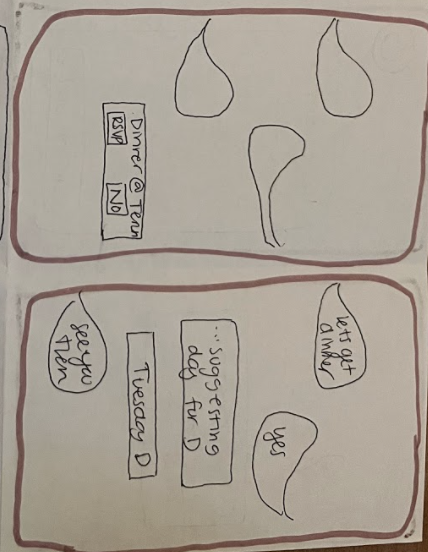 Dinner @
RSVP No
lets get
dinner
yes
...suggesting
day for D
Tuesday D
see you
Then